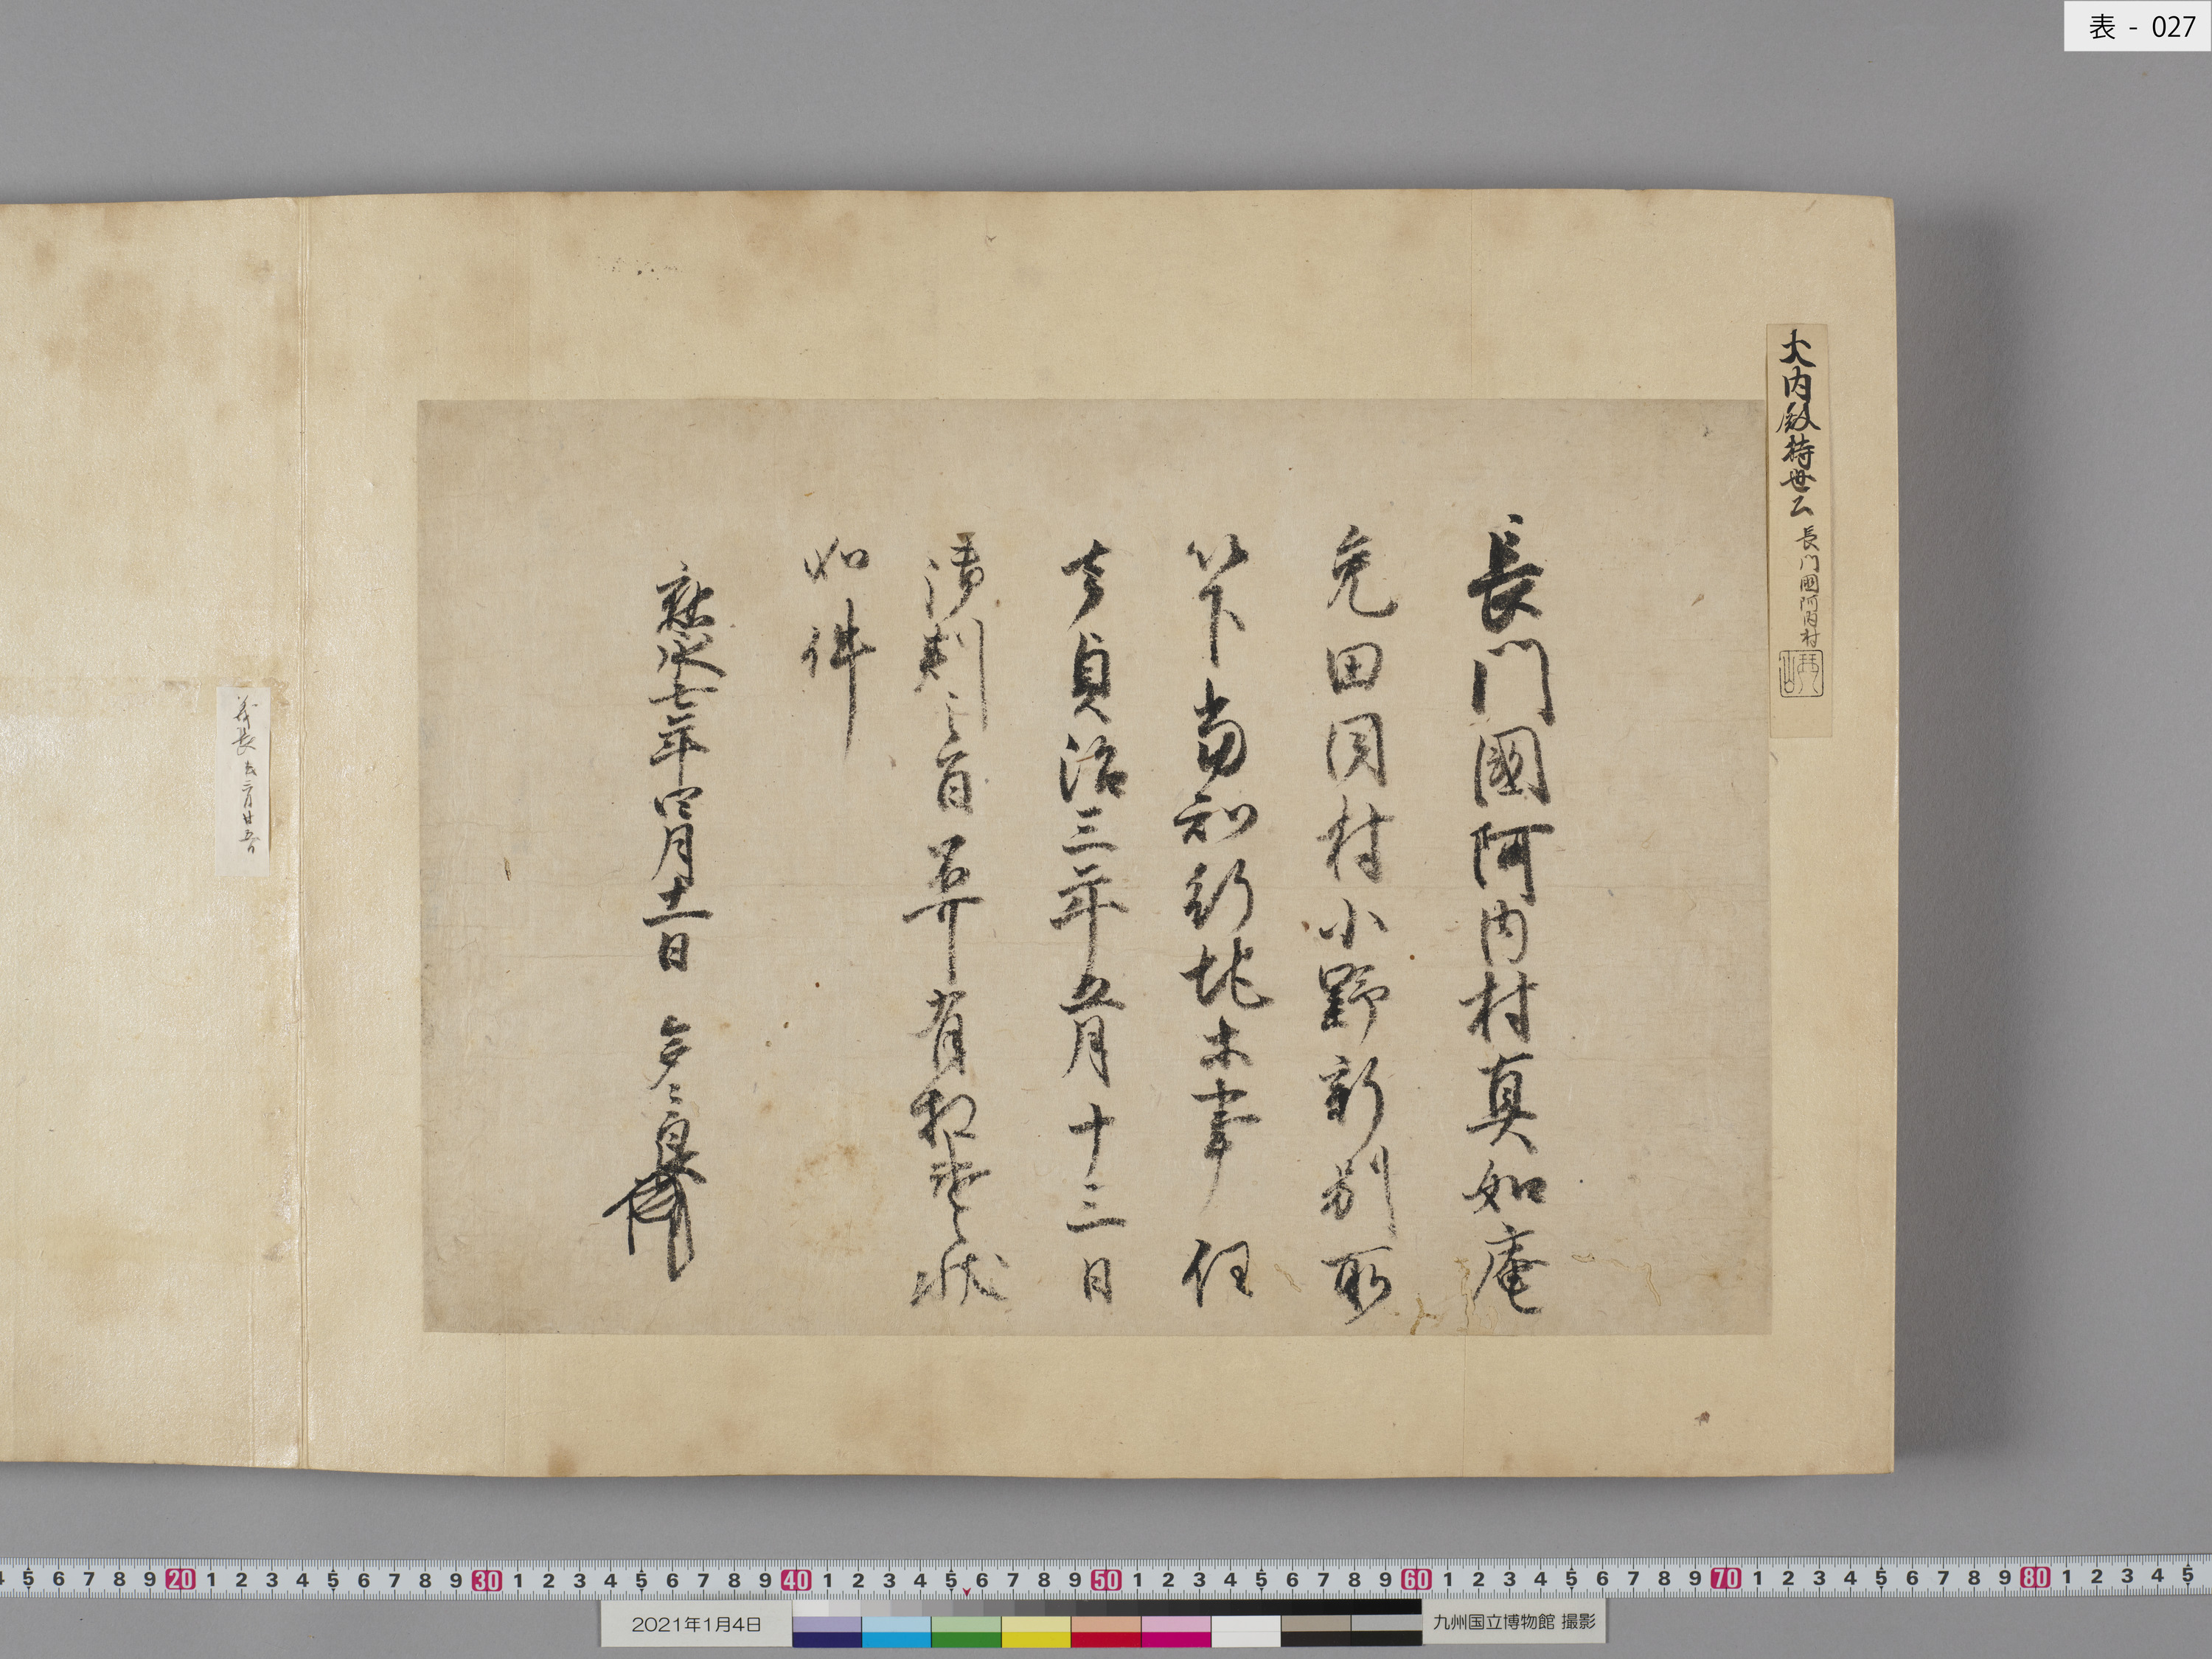 表 - 027
大内殿持世公 長門國阿内村
長門國阿内村真如庵
免田同村小野新別所
以下当知行地等事任
去貞治三年五月十三日
御判之旨不可有相違之状
如件
應永七年四月十一日 多々良
義長
4 5 6 7 8 9 20 1 2 3 4 5 6 7 8 9 30 1 2 3 4 5 6 7 8 9 40 1 2 3 4 5 6 7 8 9 50 1 2 3 4 5 6 7 8 9 60 1 2 3 4 5 6 7 8 9 70 1 2 3 4 5 6 7 8 9 80 1 2 3 4 5
2021年1月4日
九州国立博物館 撮影